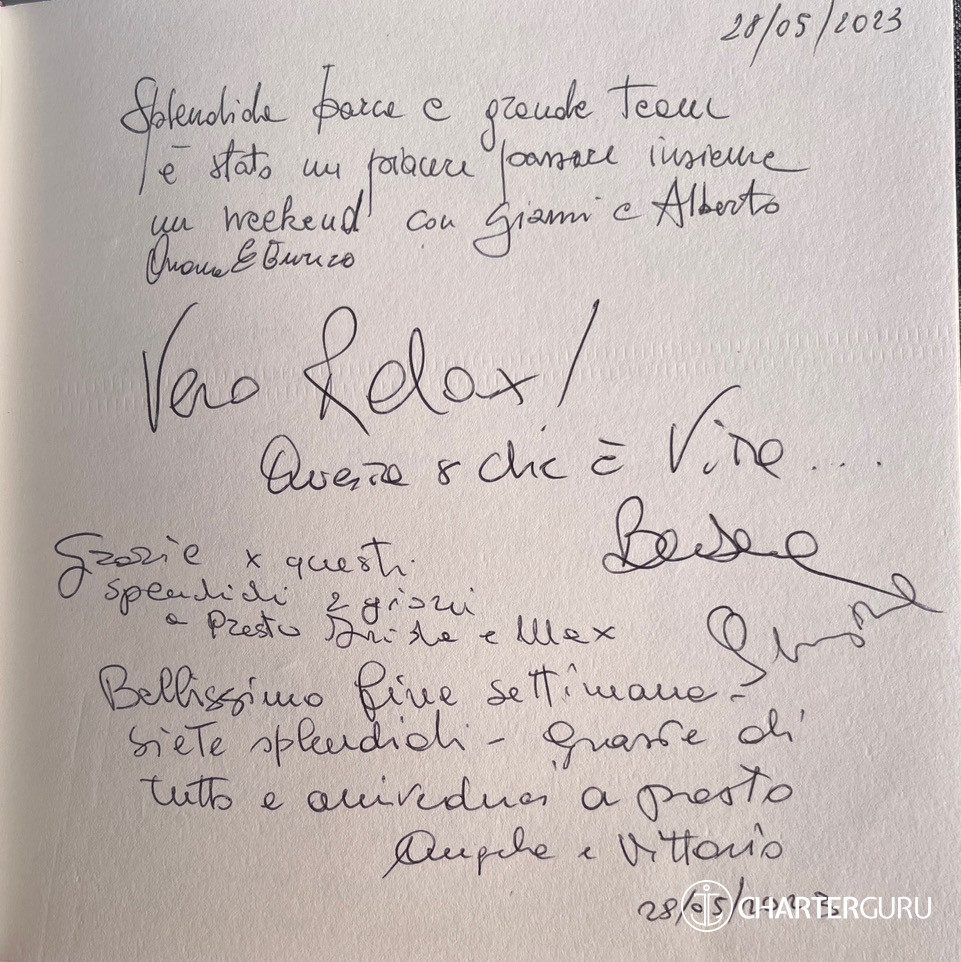 28/05/2023
Splendida barca e grande Team
è stato un piacere passare insieme
un weekend con Gianni e Alberto
Vero Relax!
Questa s che è Vita....
Grazie x questi
splendidi 2 giorni
a Presto e Max
Bellissimo fine settimana -
siete splendidi - grazie di
tutto e arrivederci a presto
Angela e Vittorio
28/05/2023
CHARTERGURU